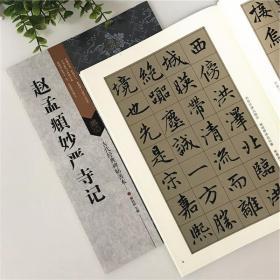 赵孟頫妙严寺记
西傍洪澤北臨洪
城映帶清流而離
絕囂塵誠一方勝
境也先是宋嘉熙